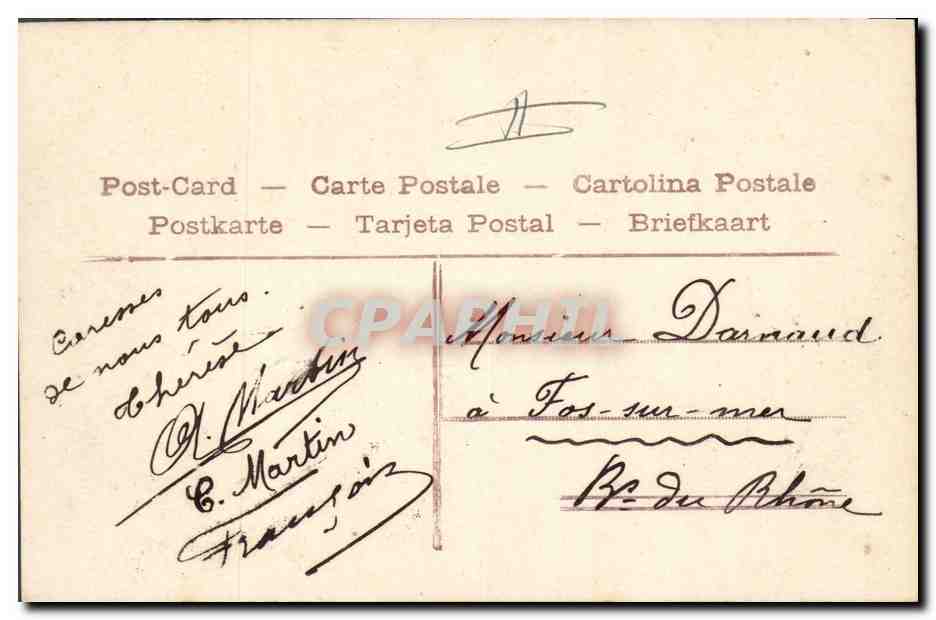 Post-Card — Carte Postale — Cartolina Postale
Postkarte — Tarjeta Postal — Briefkaart
Caresses
de nous tous.
Thérèse
A. Martin
C. Martin
François
CPAPHIL
Monsieur Darnaud
à Fos-sur-mer
Bs du Rhône